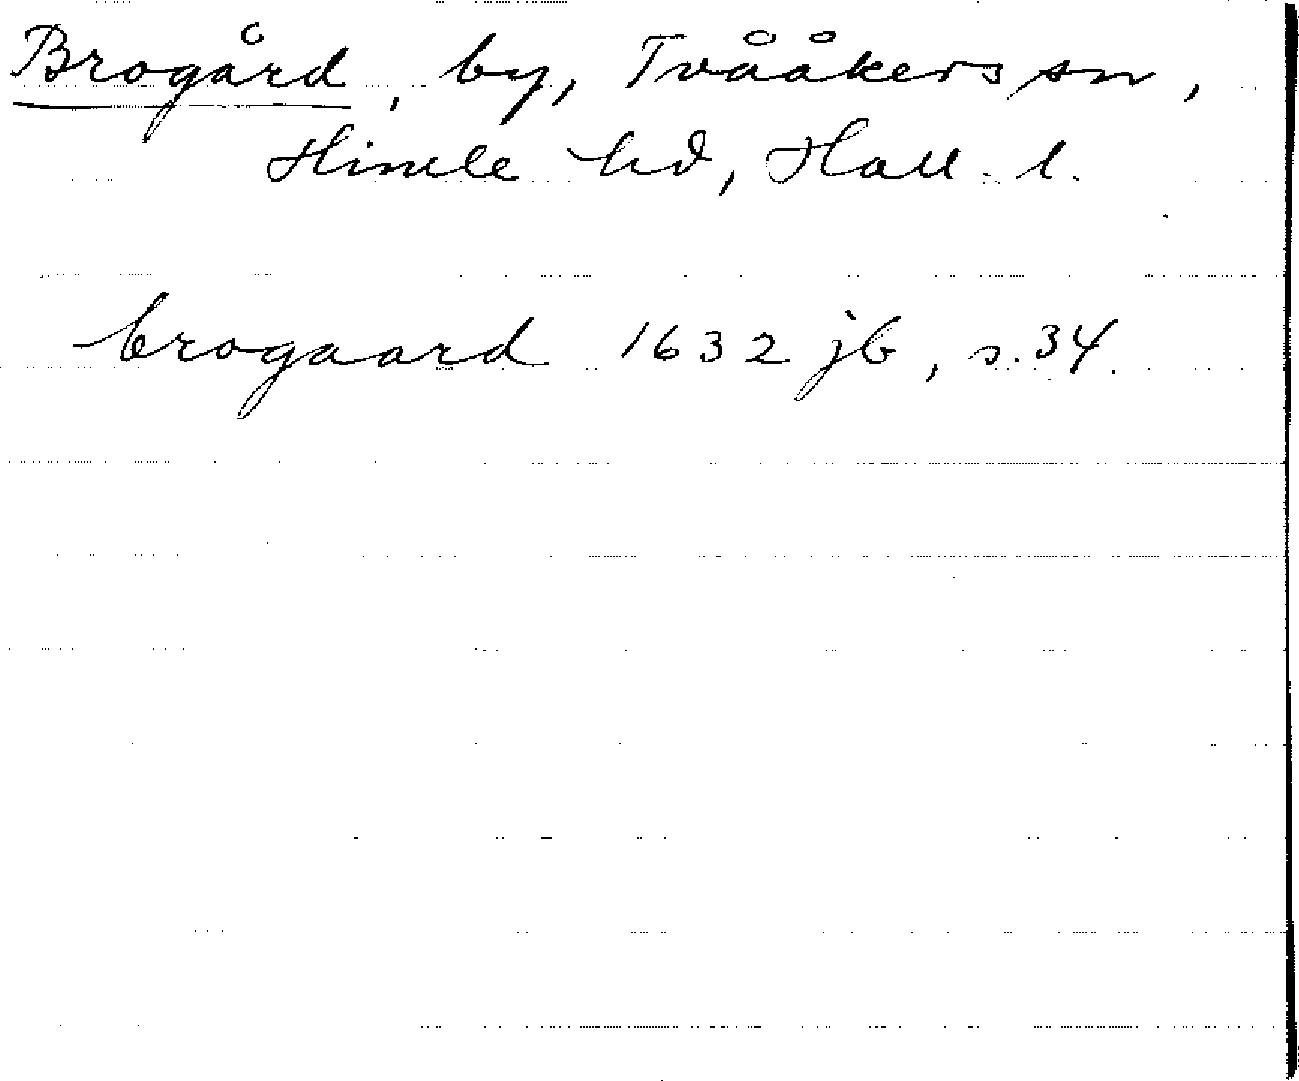 Brogård, by, Tvååkers sn,
Himle hd, Hall. l.
brogaard 1632 jb, s. 34.